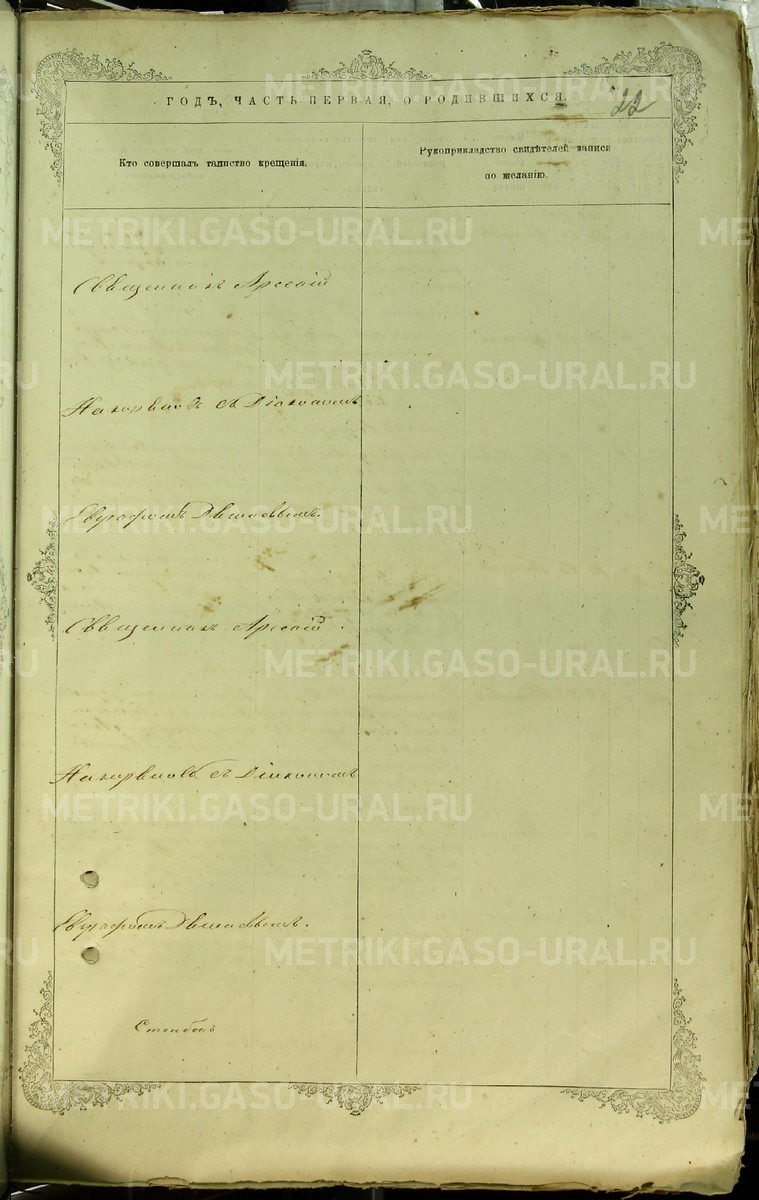 ГОДЪ, ЧАСТЬ ПЕРВАЯ, О РОДИВШИХСЯ.
22
Кто совершалъ таинство крещенія.
Рукоприкладство свидѣтелей записи
по желанію.
Священникъ Арсеній
съ Діакономъ
Евграфомъ
Священникъ Арсеній
съ Діакономъ
Евграфомъ
METRIKI.GASO-URAL.RU